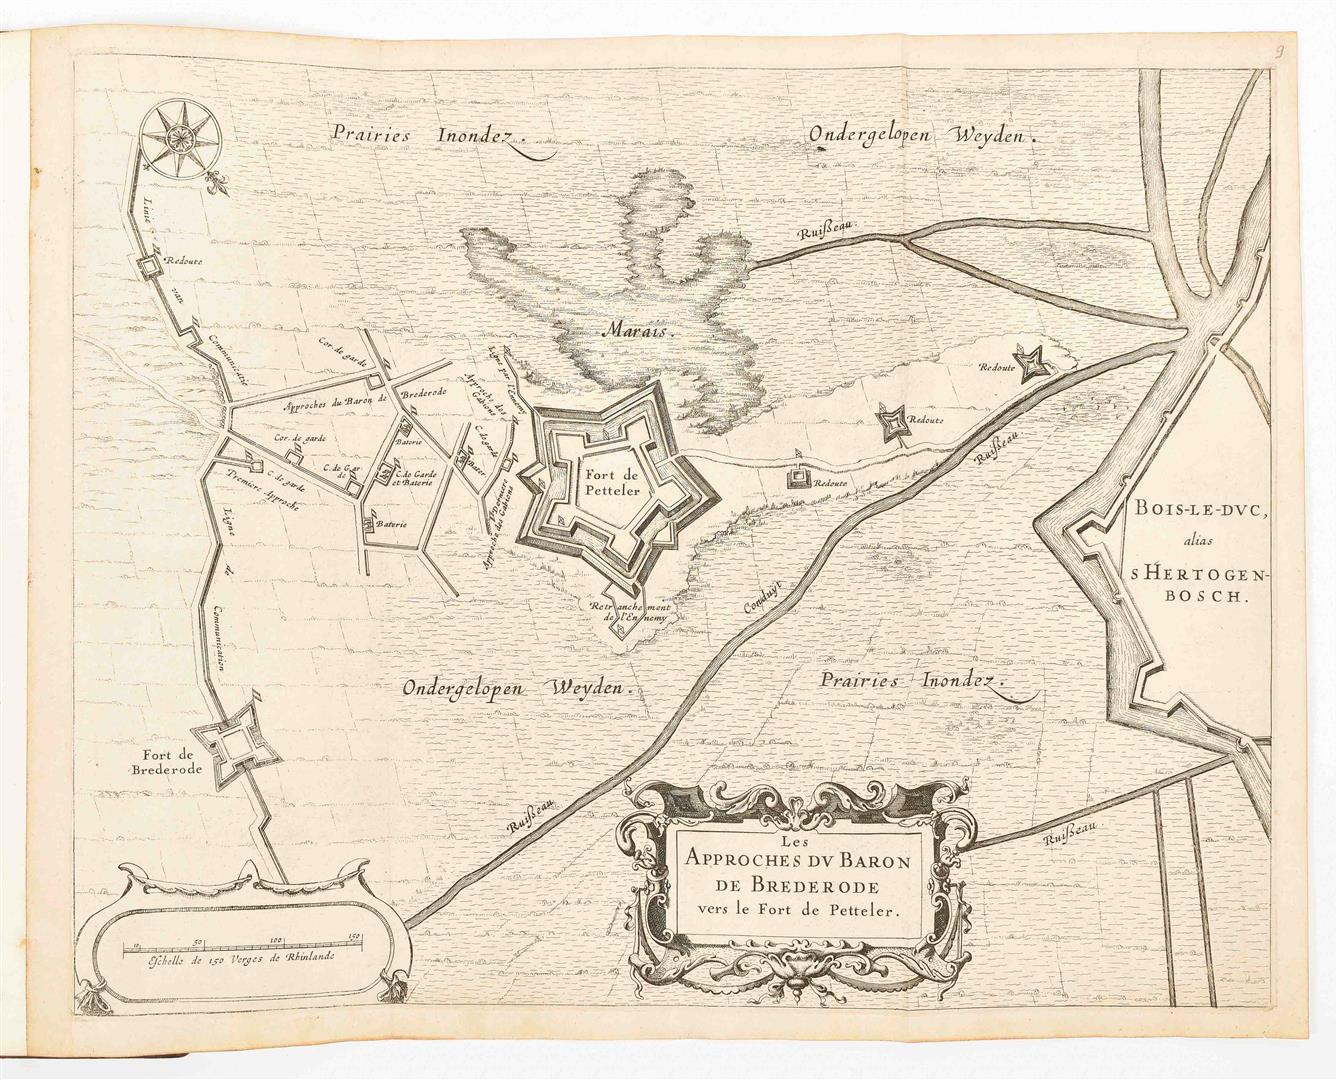 9
Prairies Inondez.
Ondergelopen Weyden.
Linie
van
Communicatie
Redoute
Ruißeau.
Marais.
Cor. de garde
Approches du Baron de Brederode
Ligne par l'Ennemy
Approche des
Gabions
Baterie
C. de garde
Bater
Cor. de garde
C. de Gar
de
C. de Garde
et Baterie
C. de garde
Premiere Approche
Baterie
Derniere
Approche des Gabions
Fort de
Petteler
Redoute
Redoute
Redoute
Ruißeau
Retranchement
de l'Ennemy
Conduyt
Bois-le-Dvc,
alias
s Hertogen-
bosch.
Ligne de Communication
Ondergelopen Weyden.
Prairies Inondez.
Fort de
Brederode
Ruißeau
Ruißeau
Les
Approches dv Baron
de Brederode
vers le Fort de Petteler.
10 50 100 150
Eschelle de 150 Verges de Rhinlande